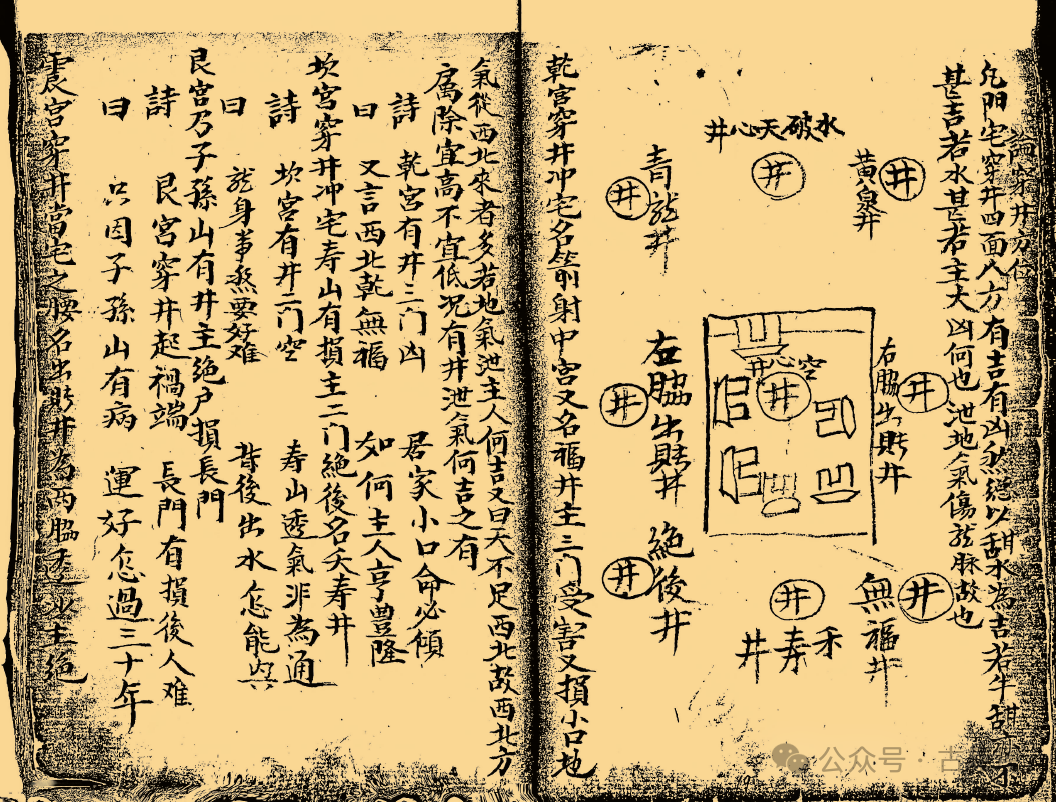 論穿井方位
凡阳宅穿井四面八方有吉有凶以甜水為吉若牛
甚吉若水甚若主大凶何也泄地氣傷龍脉故也
黄泉井
井
水破天心井
井
青龍井
井
右脇出財井
井
空心井
井
右脇出財井
井
絶後井
井
禾寿井
井
無福井
井
乾宮穿井冲宅名箭射中宮又名福井主三门受害又損小口地
氣從西北來者多若地氣泄主人何吉又曰天不足西北故西北方
属除宜高不宜低况有井泄氣何吉之有
詩 乾宮有井三门凶 居家小口命必傾
曰 又言西北乾無福 如何主人亨豊隆
坎宮穿井冲宅寿山有損主二门絶後名夭寿井
詩 坎宮有井二门空 寿山透氣非為通
曰 龍身事煞要好难 背後出水怎能興
艮宮乃子孫山有井主絶户損長門
詩 艮宮穿井起禍端 長門有損後人难
曰 只因子孫山有病 運好怎過三十年
震宮穿井當宅之腰名出財井為两脇透水主絶
公众号·古